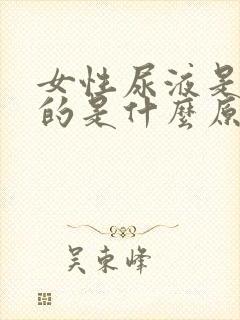 女性尿液是
的是什麼原
吴東峰